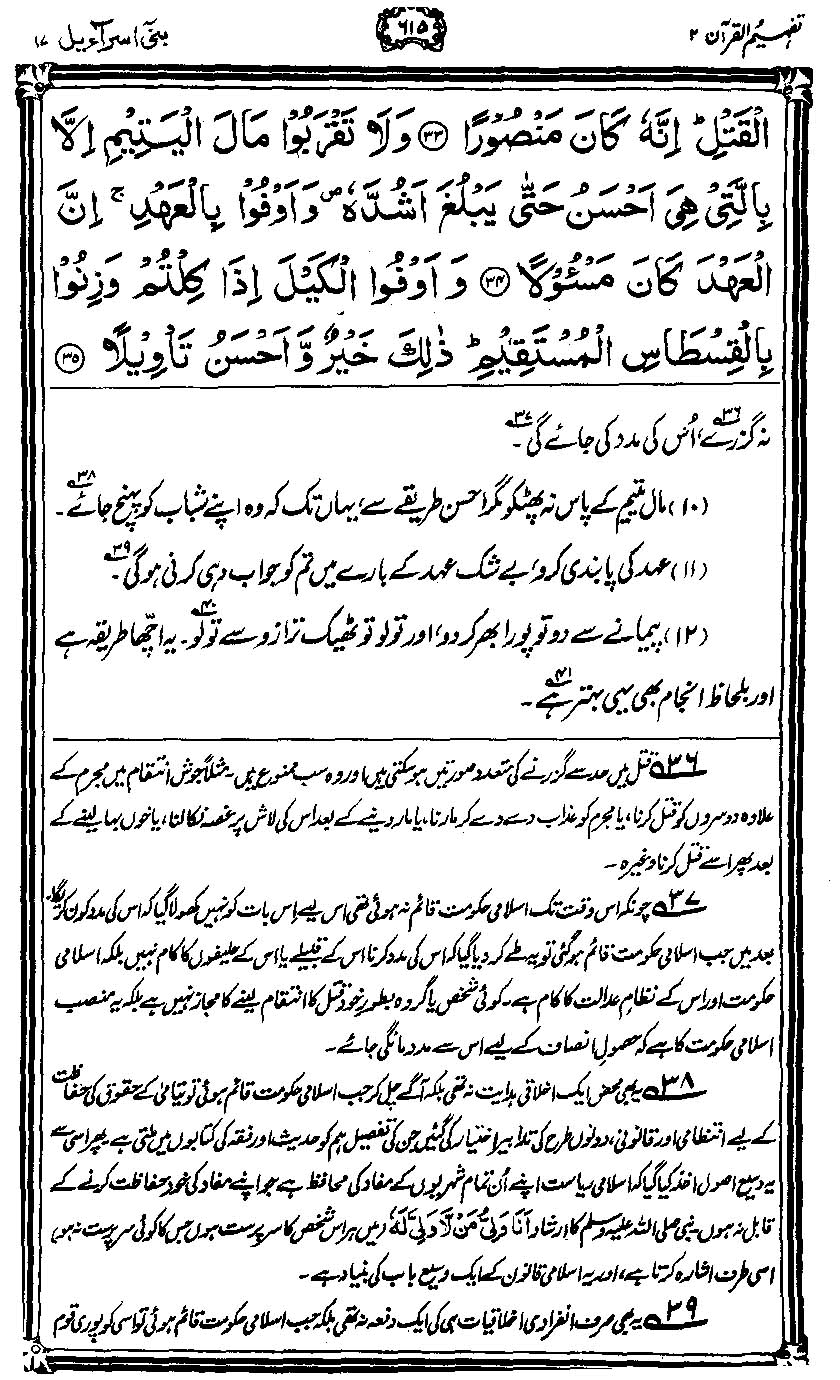 تفہیم القرآن ۲
۶۱۵
بنی اسرآءیل ۱۷
الْقَتْلِ ؕ اِنَّهٗ كَانَ مَنْصُوْرًا ۳۳ وَلَا تَقْرَبُوْا مَالَ الْيَتِيْمِ اِلَّا
بِالَّتِيْ هِيَ اَحْسَنُ حَتّٰى يَبْلُغَ اَشُدَّهٗ ۪ وَاَوْفُوْا بِالْعَهْدِ ۚ اِنَّ
الْعَهْدَ كَانَ مَسْـُٔوْلًا ۳۴ وَ اَوْفُوا الْكَيْلَ اِذَا كِلْتُمْ وَزِنُوْا
بِالْقِسْطَاسِ الْمُسْتَقِيْمِ ؕ ذٰلِكَ خَيْرٌ وَّاَحْسَنُ تَاْوِيْلًا ۳۵
نہ گزرے۳۶، اُس کی مدد کی جائے گی۳۷۔
(۱۰) مال یتیم کے پاس نہ پھٹکو مگر احسن طریقے سے، یہاں تک کہ وہ اپنے شباب کو پہنچ جائے۳۸۔
(۱۱) عہد کی پابندی کرو، بے شک عہد کے بارے میں تم کو جواب دہی کرنی ہوگی۳۹۔
(۱۲) پیمانے سے دو تو پورا بھر کر دو، اور تولو تو ٹھیک ترازو سے تولو۴۰۔ یہ اچّھا طریقہ ہے
اور بلحاظ انجام بھی یہی بہتر ہے۴۱۔
۳۶ قتل میں حد سے گزرنے کی متعدد صورتیں ہو سکتی ہیں اور وہ سب ممنوع ہیں۔ مثلاً جوش انتقام میں مجرم کے
علاوہ دوسروں کو قتل کرنا، یا مجرم کو عذاب دے دے کر مارنا، یا مار دینے کے بعد اس کی لاش پر غصہ نکالنا، یا خوں بہا لینے کے
بعد پھر اسے قتل کرنا وغیرہ۔
۳۷ چونکہ اس وقت تک اسلامی حکومت قائم نہ ہوئی تھی اس لیے اِس بات کو نہیں کھولا گیا کہ اس کی مدد کون کرے گا۔
بعد میں جب اسلامی حکومت قائم ہو گئی تو یہ طے کر دیا گیا کہ اس کی مدد کرنا اس کے قبیلے یا اس کے حلیفوں کا کام نہیں بلکہ اسلامی
حکومت اور اس کے نظامِ عدالت کا کام ہے۔ کوئی شخص یا گروہ بطور خود قتل کا انتقام لینے کا مجاز نہیں ہے بلکہ یہ منصب
اسلامی حکومت کا ہے کہ حصولِ انصاف کے لیے اس سے مدد مانگی جائے۔
۳۸ یہ بھی محض ایک اخلاقی ہدایت نہ تھی بلکہ آگے چل کر جب اسلامی حکومت قائم ہوئی تو یتامیٰ کے حقوق کی حفاظت
کے لیے انتظامی اور قانونی، دونوں طرح کی تدابیر اختیار کی گئیں جن کی تفصیل ہم کو حدیث اور فقہ کی کتابوں میں ملتی ہے۔ پھر اسی سے
یہ وسیع اصول اخذ کیا گیا کہ اسلامی ریاست اپنے اُن تمام شہریوں کے مفاد کی محافظ ہے جو اپنے مفاد کی خود حفاظت کرنے کے
قابل نہ ہوں۔ نبی صلی اللہ علیہ وسلم کا ارشاد اَنَا وَلِیُّ مَنْ لَّا وَلِیَّ لَہٗ (میں ہر اس شخص کا سرپرست ہوں جس کا کوئی سرپرست نہ ہو)
اسی طرف اشارہ کرتا ہے، اور یہ اسلامی قانون کے ایک وسیع باب کی بنیاد ہے۔
۳۹ یہ بھی صرف انفرادی اخلاقیات ہی کی ایک دفعہ نہ تھی بلکہ جب اسلامی حکومت قائم ہوئی تو اسی کو پوری قوم